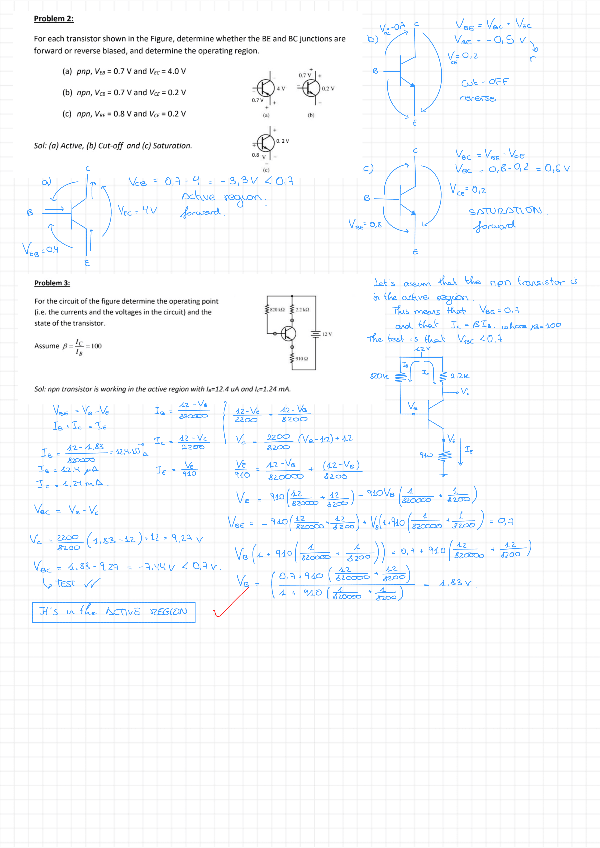 Problem 2:
For each transistor shown in the Figure, determine whether the BE and BC junctions are
forward or reverse biased, and determine the operating region.
(a) pnp, VEB = 0.7 V and VEC = 4.0 V
(b) npn, VCE = 0.7 V and VCE = 0.2 V
(c) npn, VBE = 0.8 V and VCE = 0.2 V
4 V
0.7 V
(a)
0.7 V
0.2 V
(b)
0.2 V
0.8 V
(c)
Sol: (a) Active, (b) Cut-off and (c) Saturation.
b)
C
B
E
VCE = 0,2
VBC = -0,5 V
CUT-OFF
reverse
a)
C
B
E
VEC = 4V
VCB = 0.7 - 4 = -3,3V < 0.7
Active region.
forward.
c)
C
B
E
VBE = 0,8
VCE = 0,2
VBC = VBE - VCE
VBC = 0,8 - 0,2 = 0,6V
SATURATION
forward
Problem 3:
For the circuit of the figure determine the operating point
(i.e. the currents and the voltages in the circuit) and the
state of the transistor.
Assume β = IC/IB = 100
820 kΩ
2.2 kΩ
12 V
910 Ω
Sol: npn transistor is working in the active region with IB=12.4 uA and IC=1.24 mA.
Let's assum that the npn transistor is
in the active region.
This means that VBE = 0.7
and that IC = βIB, where β=100
The test is that VBC < 0.7
12V
820k
2.2k
VC
VB
910
IE
IB = (12 - VB)/820000
IC = (12 - VC)/2200
IE = VE/910
IB = (12 - 1,83)/820000
IB = 12.4 μA
IC = 1,24 mA.
VBC = VB - VC
VC = 2200/8200 (1,83 - 12) + 12 = 9,27 V
VBC = 1.83 - 9.27 = -7.44 V < 0.7 V.
↳ TEST ✓✓
It's in the ACTIVE REGION
VC = 2200/8200 (VB - 12) + 12
VE/910 = (12 - VB)/820000 + (12 - VB)/8200
VE = 910(12/820000 + 12/8200) - 910VB(1/820000 + 1/8200)
VBE = -910(12/820000 + 12/8200) + VB(1 + 910(1/820000 + 1/8200)) = 0,7
VB(1 + 910(1/820000 + 1/8200)) = 0,7 + 910(12/820000 + 12/8200)
VB = (0.7 + 910(12/820000 + 12/8200))/(1 + 910(1/820000 + 1/8200)) = 1,83 V